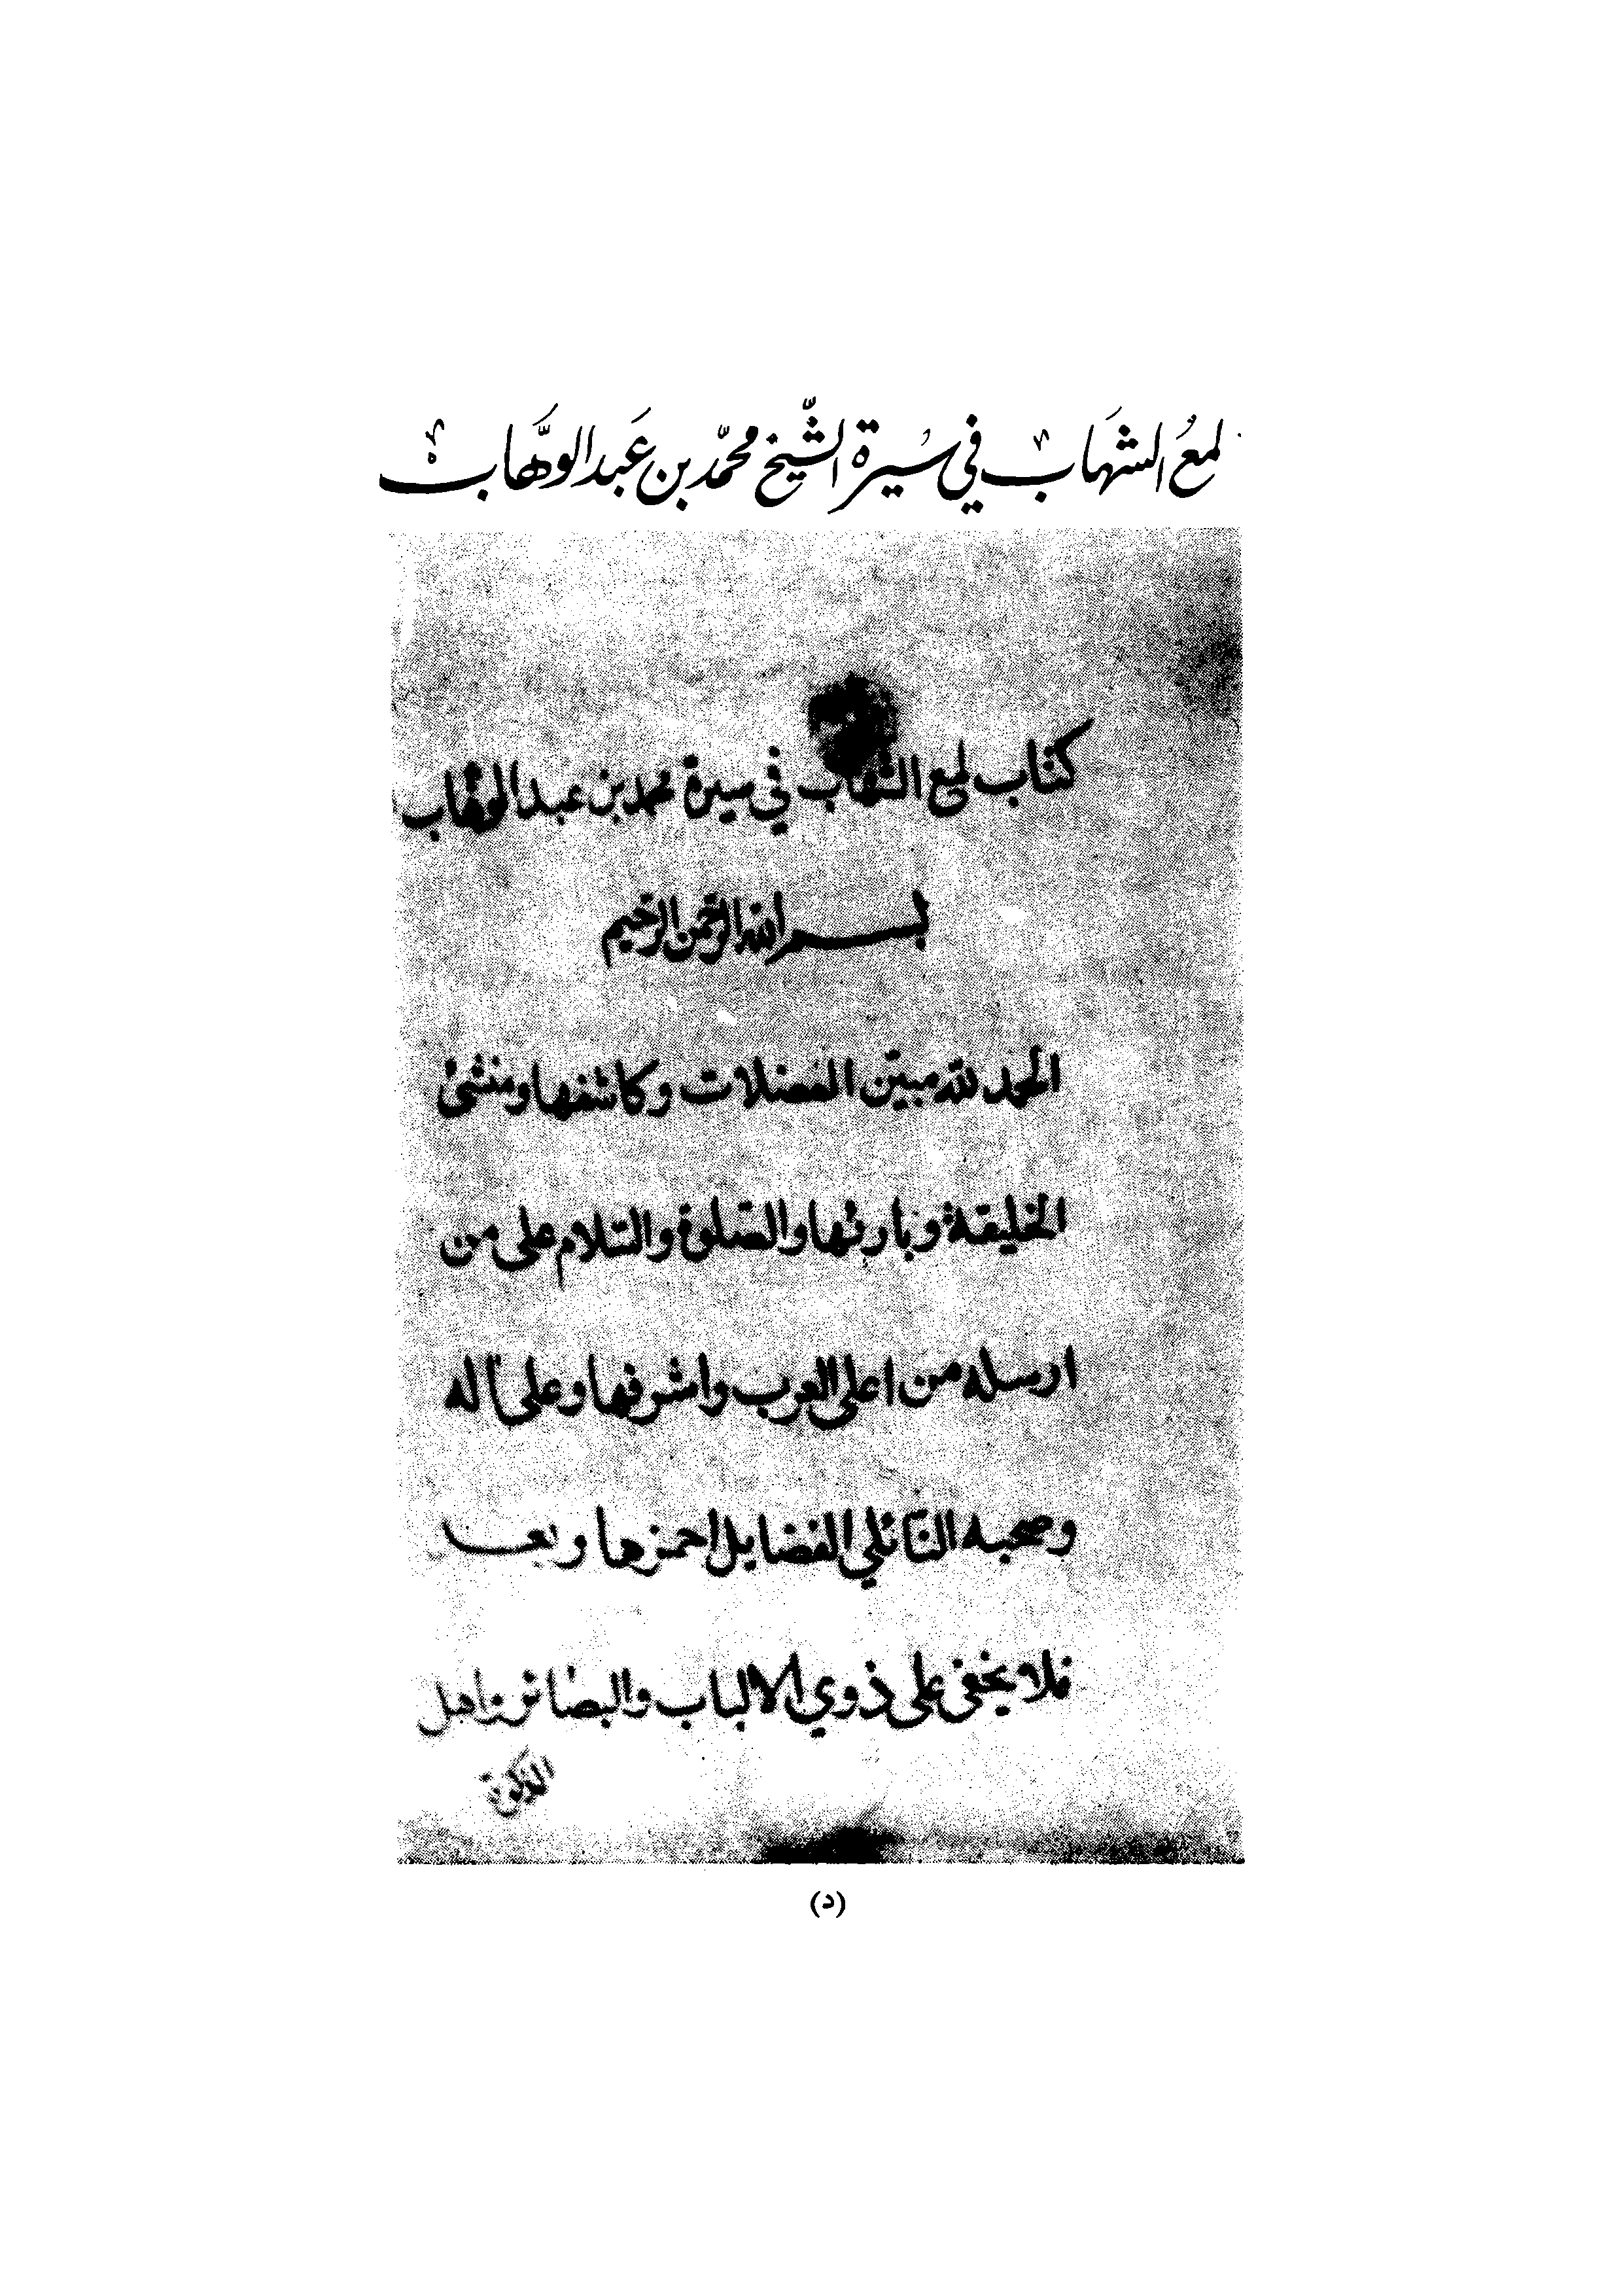 لمعُ الشهَاب في سيُرة الشّيخ محمّد بن عَبد الوهَّاب
كتاب لمع الشهاب في سيرة محمد بن عبد الوهاب
بسم الله الرحمن الرحيم
الحمد لله مبيّن المعضلات وكاشفها ومنشئ
الخليقة وبارئها والصّلوة والسّلام على من
ارسله من اعلى العرب واشرفها وعلى آله
وصحبه النّائلي الفضايل احمزها وبعد
فلا يخفى على ذوي الالباب والبصائر باهل
(د)